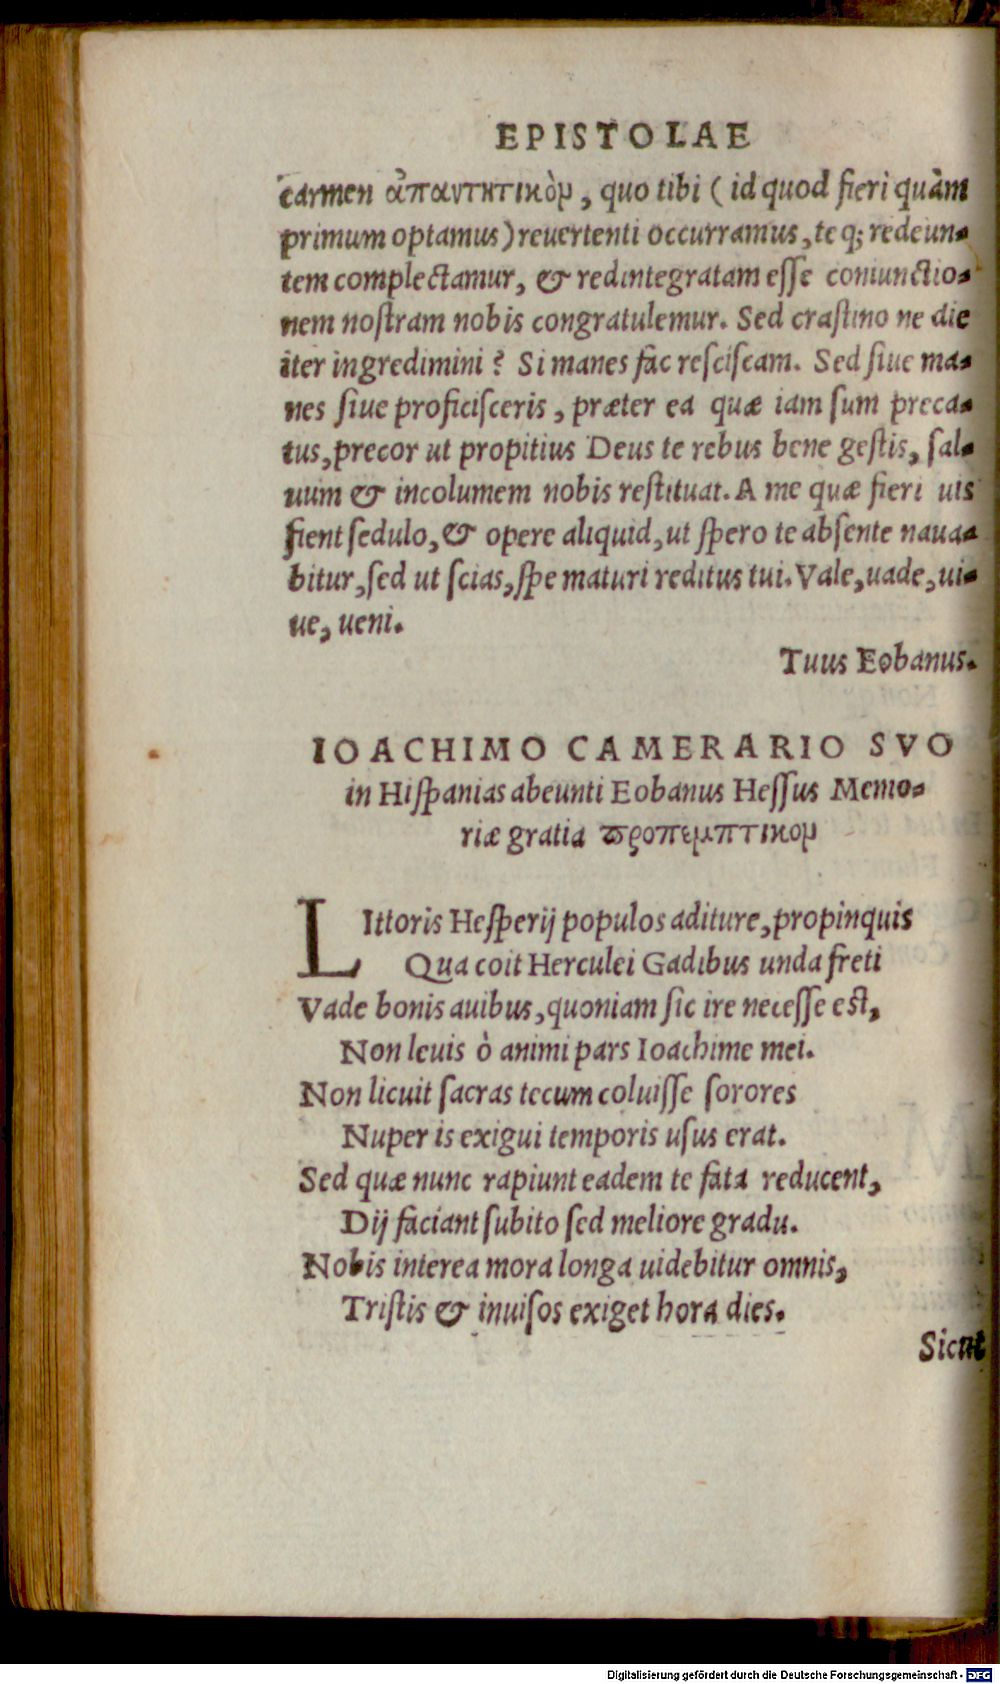 EPISTOLAE
carmen ἀπαντητικὸν, quo tibi ( id quod fieri quàm
primum optamus) reuertenti occurramus, te q; redeun-
tem complectamur, & redintegratam esse coniunctio-
nem nostram nobis congratulemur. Sed crastino ne die
iter ingredimini? Si manes fac resciscam. Sed siue ma-
nes siue proficisceris, præter ea quæ iam sum preca-
tus, precor ut propitius Deus te rebus bene gestis, sal-
uum & incolumem nobis restituat. A me quæ fieri uis
fient sedulo, & opere aliquid, ut spero te absente naua-
bitur, sed ut scias, spe maturi reditus tui. Vale, uade, ui-
ue, ueni.
Tuus Eobanus.
IOACHIMO CAMERARIO SVO
in Hispanias abeunti Eobanus Hessus Memo-
riæ gratia προπεμπτικον
LIttoris Hesperij populos aditure, propinquis
Qua coit Herculei Gadibus unda freti
Vade bonis auibus, quoniam sic ire necesse est,
Non leuis ò animi pars Ioachime mei.
Non licuit sacras tecum coluisse sorores
Nuper is exigui temporis usus erat.
Sed quæ nunc rapiunt eadem te fata reducent,
Dij faciant subito sed meliore gradu.
Nobis interea mora longa uidebitur omnis,
Tristis & inuisos exiget hora dies.
Sicut
Digitalisierung gefördert durch die Deutsche Forschungsgemeinschaft - DFG